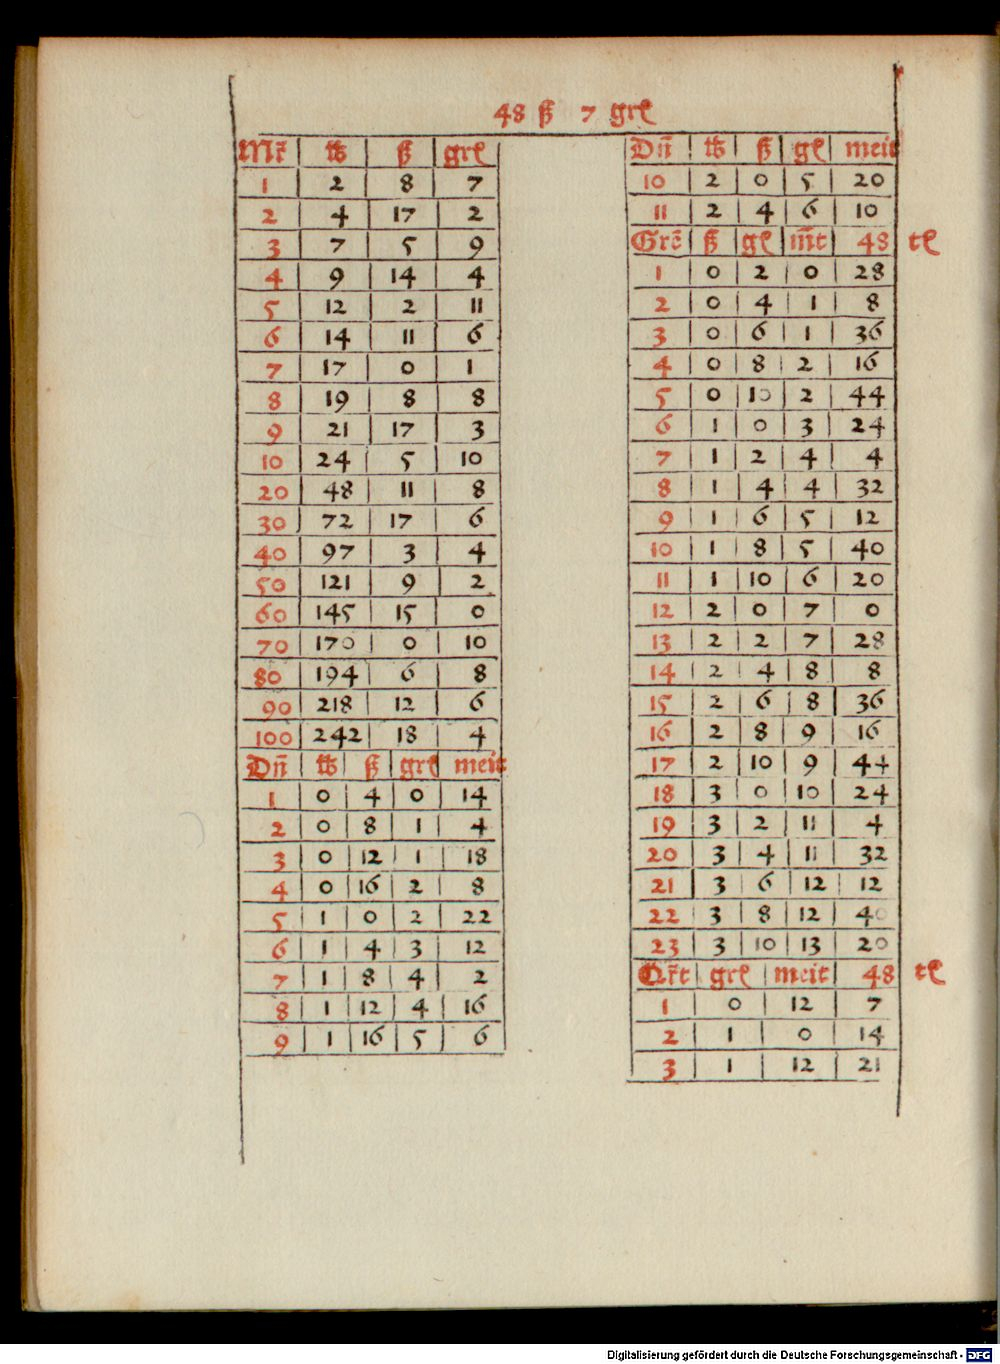 48 ß 7 grł
Mr̃ ℔ ß grł
1 2 8 7
2 4 17 2
3 7 5 9
4 9 14 4
5 12 2 11
6 14 11 6
7 17 0 1
8 19 8 8
9 21 17 3
10 24 5 10
20 48 11 8
30 72 17 6
40 97 3 4
50 121 9 2
60 145 15 0
70 170 0 10
80 194 6 8
90 218 12 6
100 242 18 4
Dñ ℔ ß grł meit
1 0 4 0 14
2 0 8 1 4
3 0 12 1 18
4 0 16 2 8
5 1 0 2 22
6 1 4 3 12
7 1 8 4 2
8 1 12 4 16
9 1 16 5 6
Dñ ℔ ß gł meit
10 2 0 5 20
11 2 4 6 10
Grẽ ß gł m̃t 48 tł
1 0 2 0 28
2 0 4 1 8
3 0 6 1 36
4 0 8 2 16
5 0 10 2 44
6 1 0 3 24
7 1 2 4 4
8 1 4 4 32
9 1 6 5 12
10 1 8 5 40
11 1 10 6 20
12 2 0 7 0
13 2 2 7 28
14 2 4 8 8
15 2 6 8 36
16 2 8 9 16
17 2 10 9 44
18 3 0 10 24
19 3 2 11 4
20 3 4 11 32
21 3 6 12 12
22 3 8 12 40
23 3 10 13 20
Qr̃t grł meit 48 tł
1 0 12 7
2 1 0 14
3 1 12 21
Digitalisierung gefördert durch die Deutsche Forschungsgemeinschaft - DFG